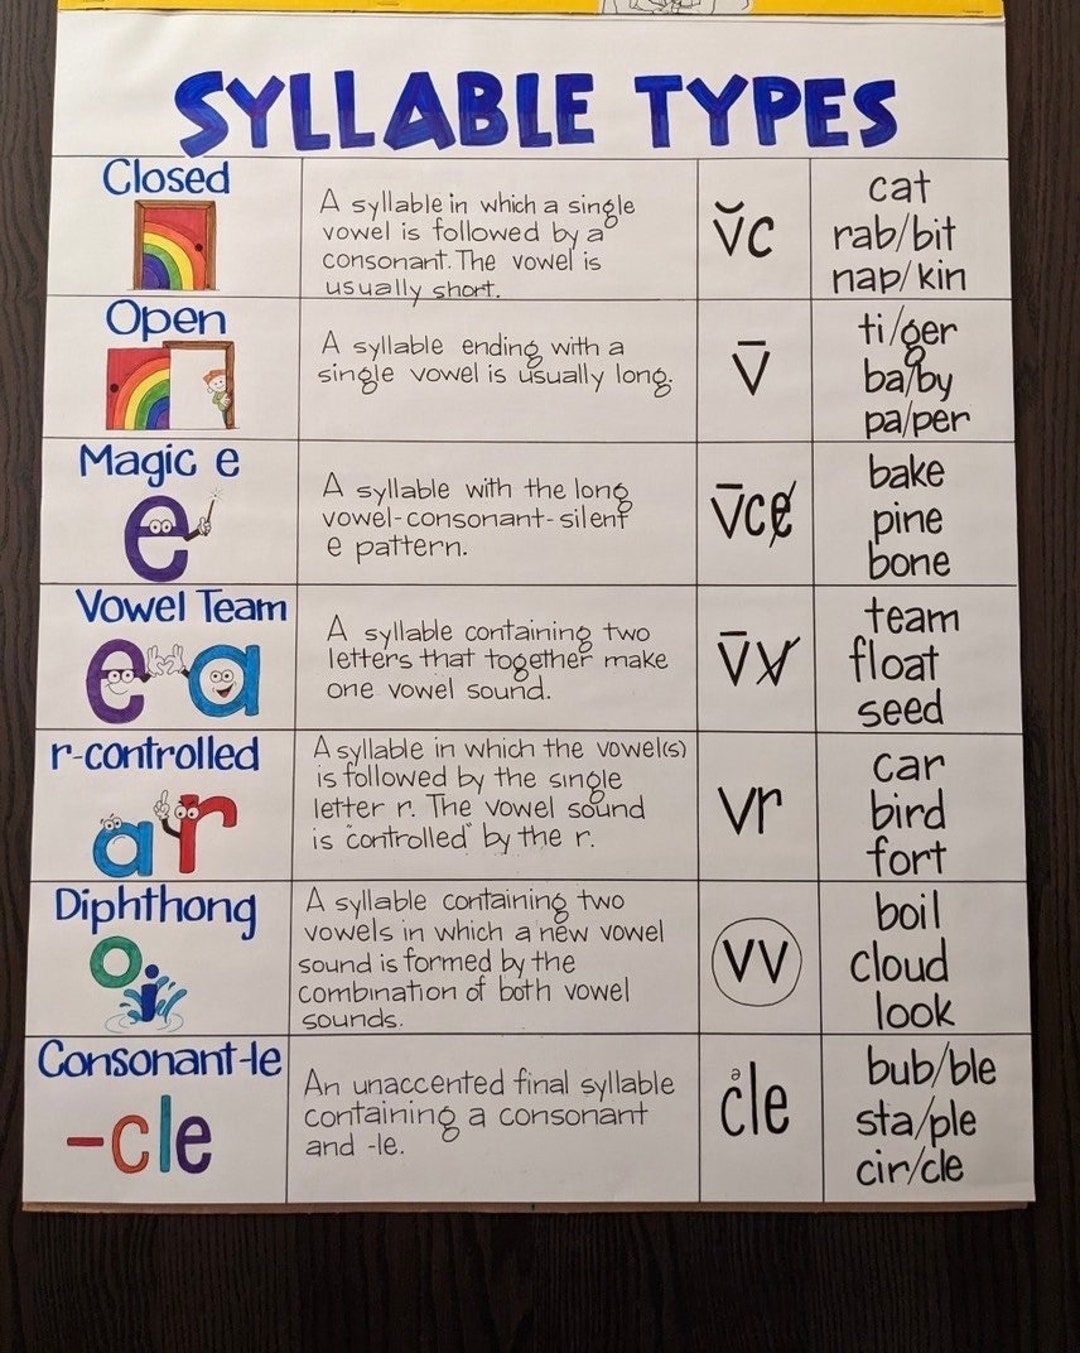 SYLLABLE TYPES
Closed
A syllable in which a single
vowel is followed by a
consonant. The vowel is
usually short.
v̆c
cat
rab/bit
nap/kin
Open
A syllable ending with a
single vowel is usually long.
v̄
ti/ger
ba/by
pa/per
Magic e
e
A syllable with the long
vowel-consonant-silent
e pattern.
v̄ce̸
bake
pine
bone
Vowel Team
ea
A syllable containing two
letters that together make
one vowel sound.
v̄v̸
team
float
seed
r-controlled
ar
A syllable in which the vowel(s)
is followed by the single
letter r. The vowel sound
is "controlled" by the r.
vr
car
bird
fort
Diphthong
oi
A syllable containing two
vowels in which a new vowel
sound is formed by the
combination of both vowel
sounds.
vv
boil
cloud
look
Consonant-le
-cle
An unaccented final syllable
containing a consonant
and -le.
ə
cle
bub/ble
sta/ple
cir/cle